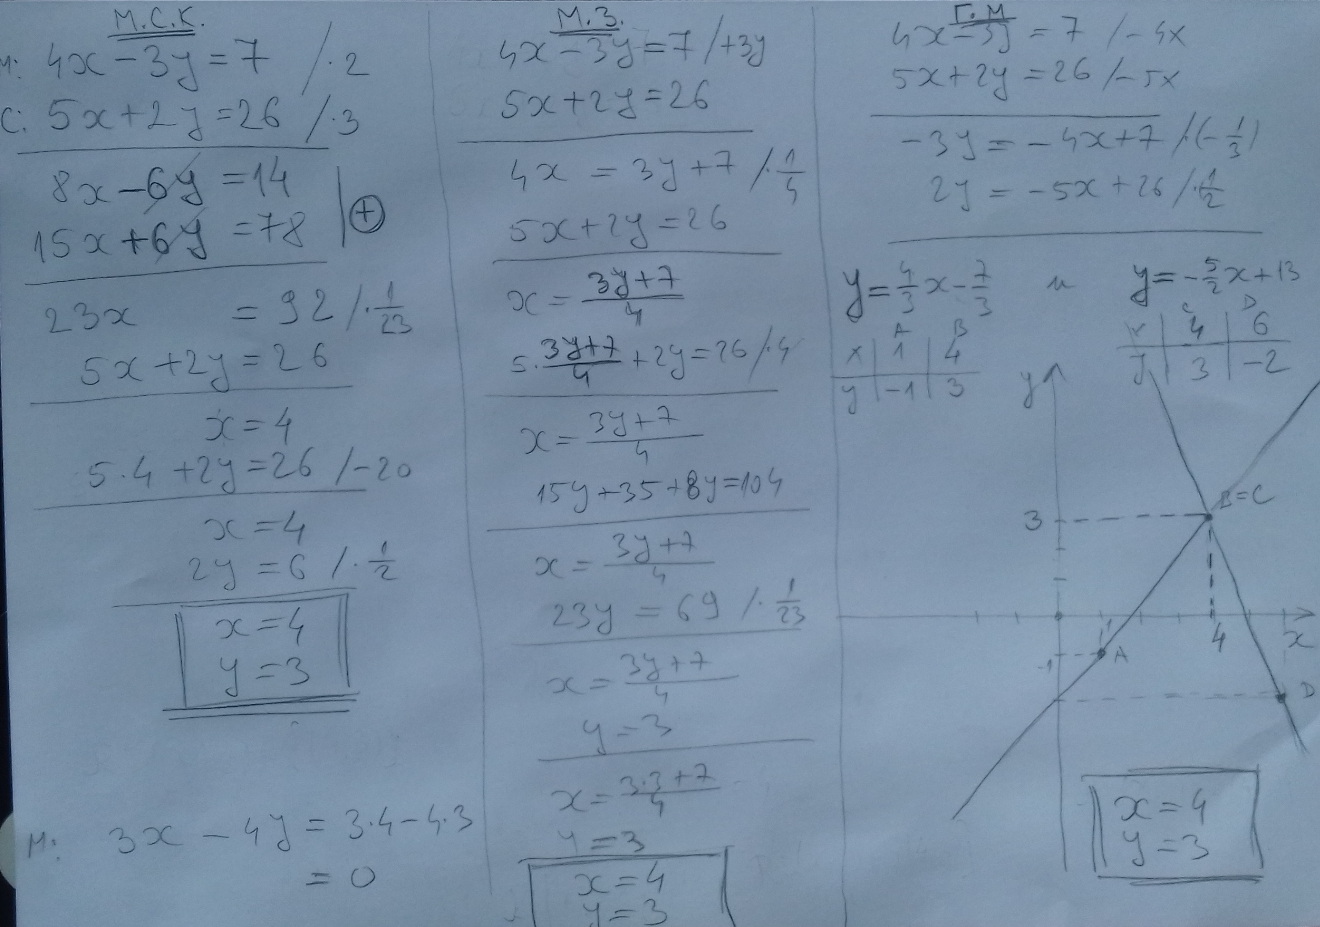 М.С.К.
М: 4x-3y=7 /·2
С: 5x+2y=26 /·3
8x-6y=14
15x+6y=78 | ⊕
23x = 92 /·1/23
5x+2y=26
x=4
5·4+2y=26 /-20
x=4
2y=6 /·1/2
x=4
y=3
М: 3x-4y=3·4-4·3
=0
М.З.
4x-3y=7 /+3y
5x+2y=26
4x=3y+7 /·1/4
5x+2y=26
x=(3y+7)/4
5·(3y+7)/4+2y=26 /·4
x=(3y+7)/4
15y+35+8y=104
x=(3y+7)/4
23y=69 /·1/23
x=(3y+7)/4
y=3
x=(3·3+7)/4
y=3
x=4
y=3
Г.М
4x-3y=7 /-4x
5x+2y=26 /-5x
-3y=-4x+7 /·(-1/3)
2y=-5x+26 /·1/2
y=4/3x-7/3 и y=-5/2x+13
A B
x | 1 | 4
y | -1 | 3
C D
x | 4 | 6
y | 3 | -2
y
3
B=C
4
x
-1
A
D
x=4
y=3